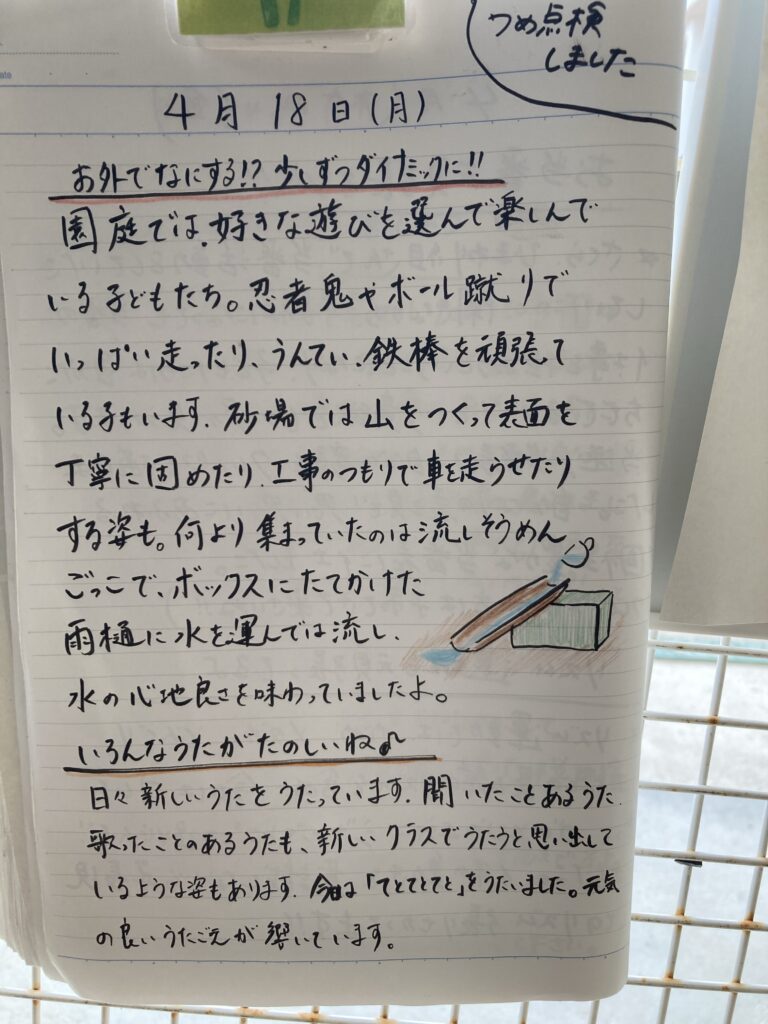 つめ点検
しました
4月18日(月)
お外でなにする!? 少しずつダイナミックに!!
園庭では、好きな遊びを選んで楽しんで
いる子どもたち。忍者鬼やボール蹴りで
いっぱい走ったり、うんてい、鉄棒を頑張って
いる子もいます。砂場では山をつくって表面を
丁寧に固めたり、工事のつもりで車を走らせたり
する姿も。何より集まっていたのは流しそうめん
ごっこで、ボックスにたてかけた
雨樋に水を運んでは流し、
水の心地良さを味わっていましたよ。
いろんなうたがたのしいね♪
日々新しいうたをうたっています。聞いたことあるうた、
歌ったことのあるうたも、新しいクラスでうたうと、思い出して
いるような姿もあります。今日は「てとてとてと」をうたいました。元気
の良いうたごえが響いています。